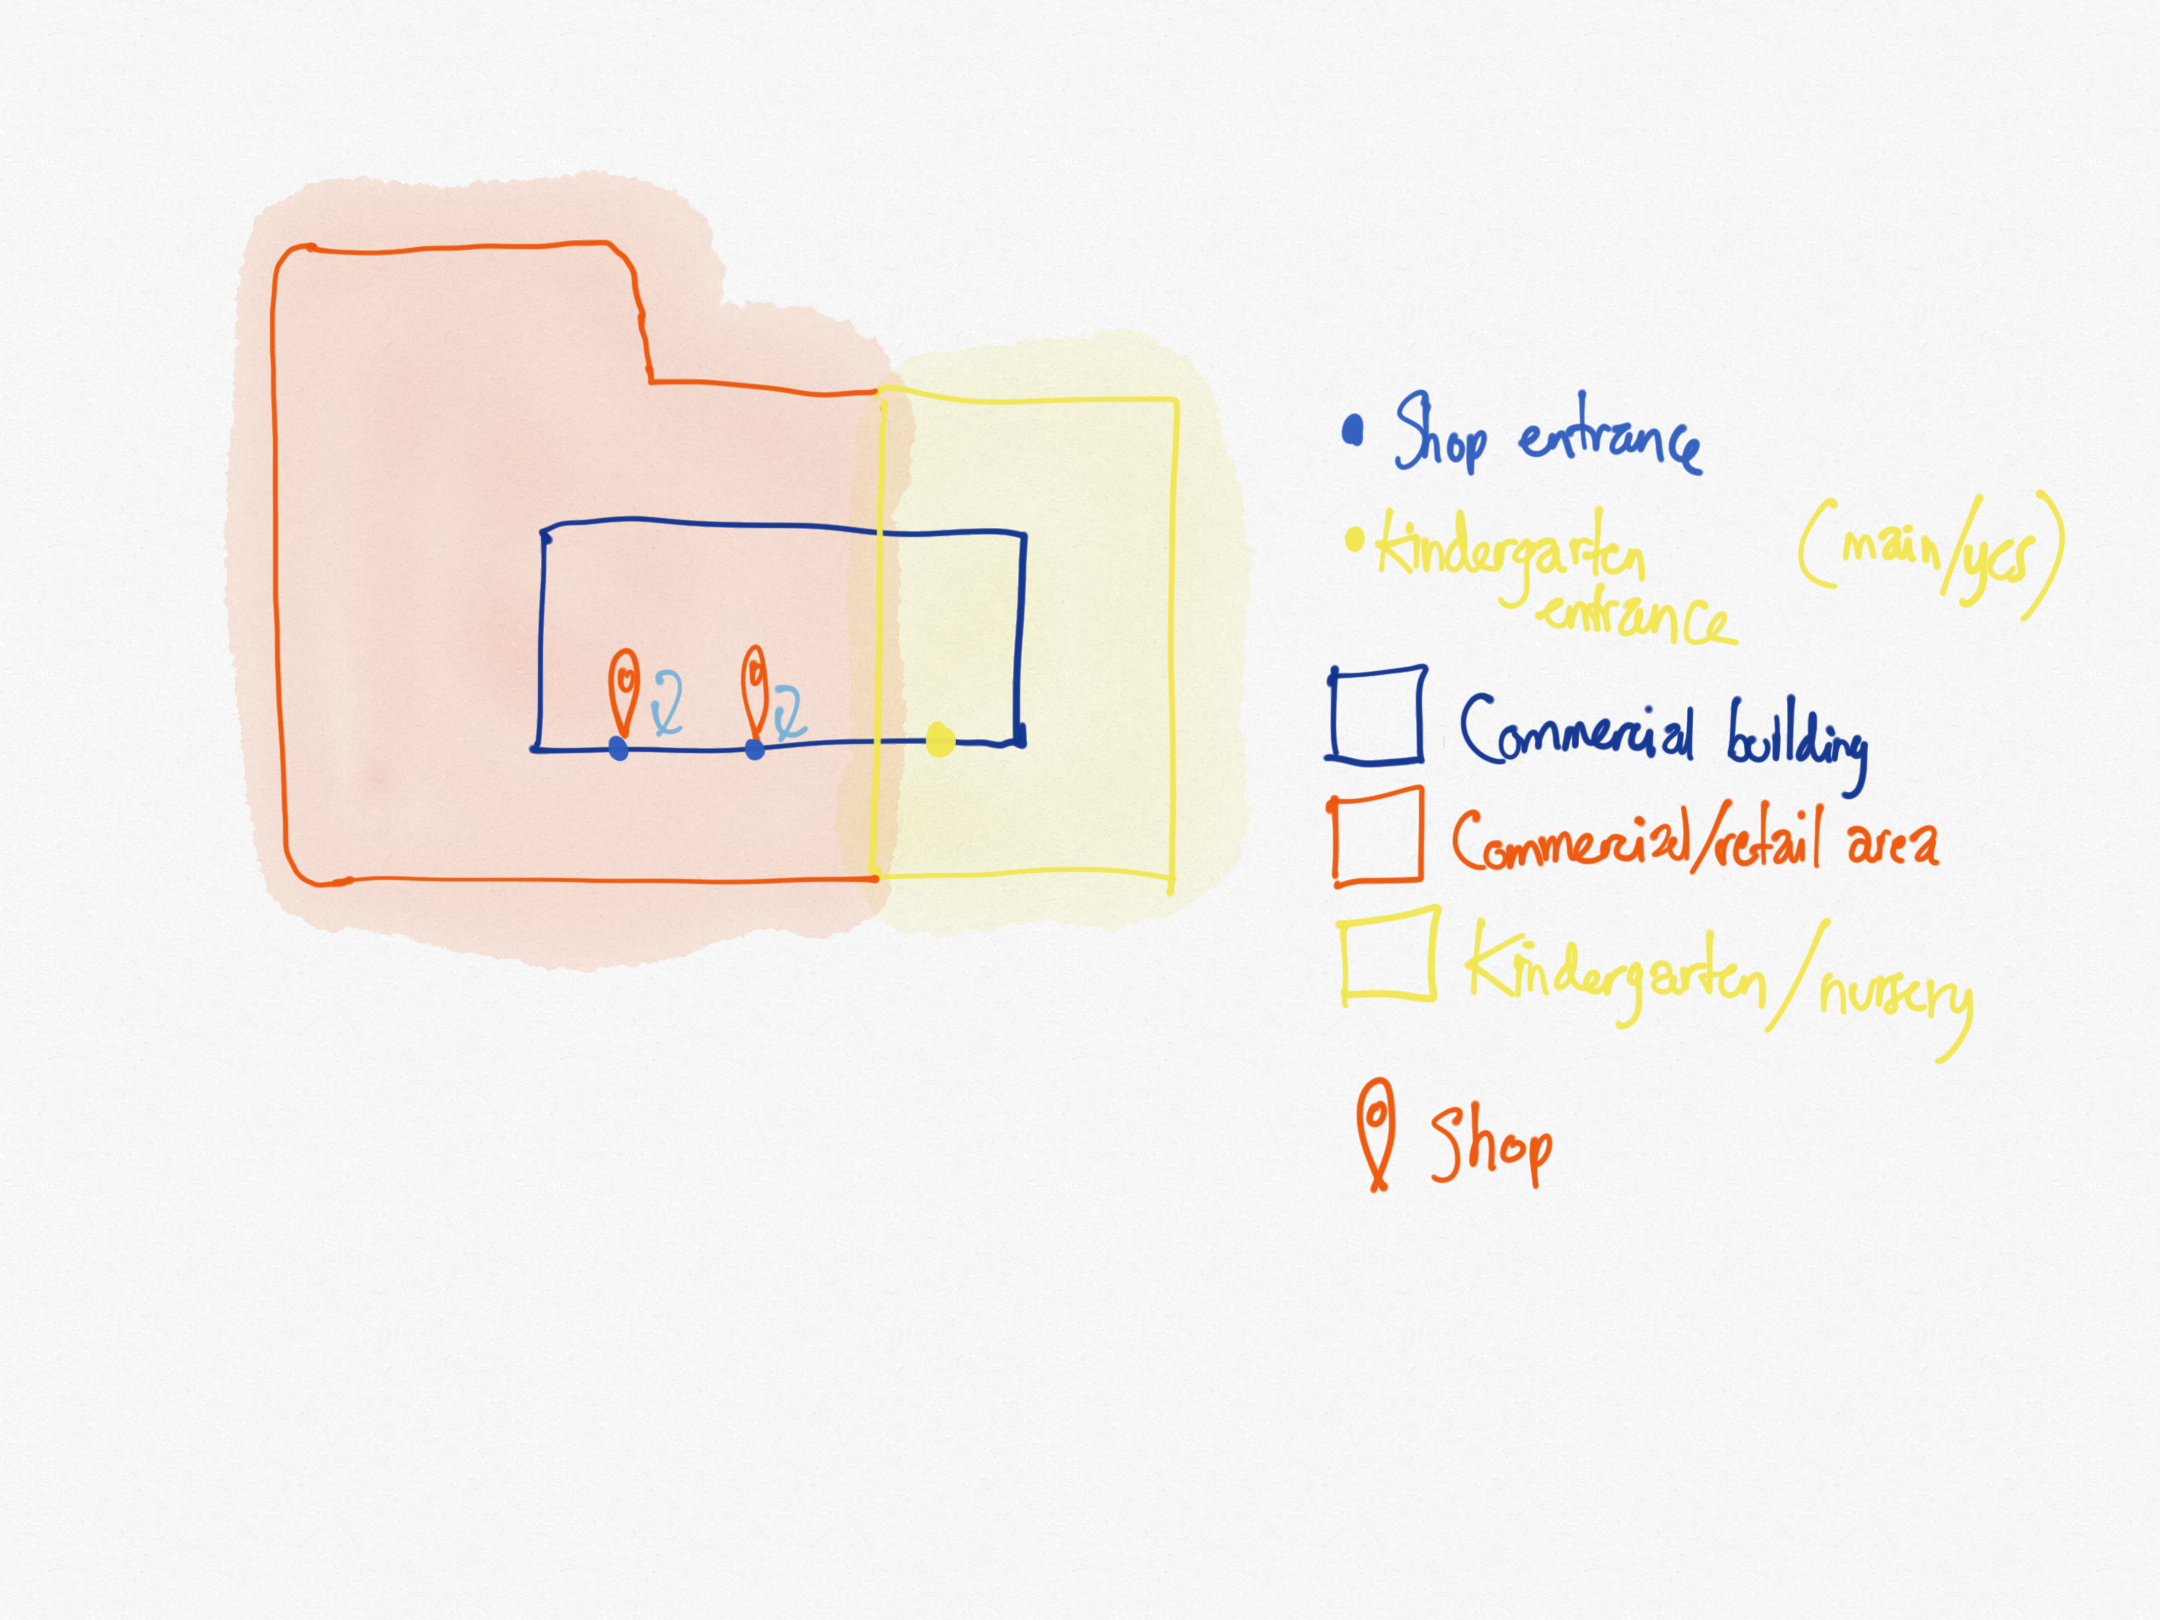 Shop entrance
Kindergarten (main/yes)
entrance
Commercial building
Commercial/retail area
Kindergarten/nursery
Shop